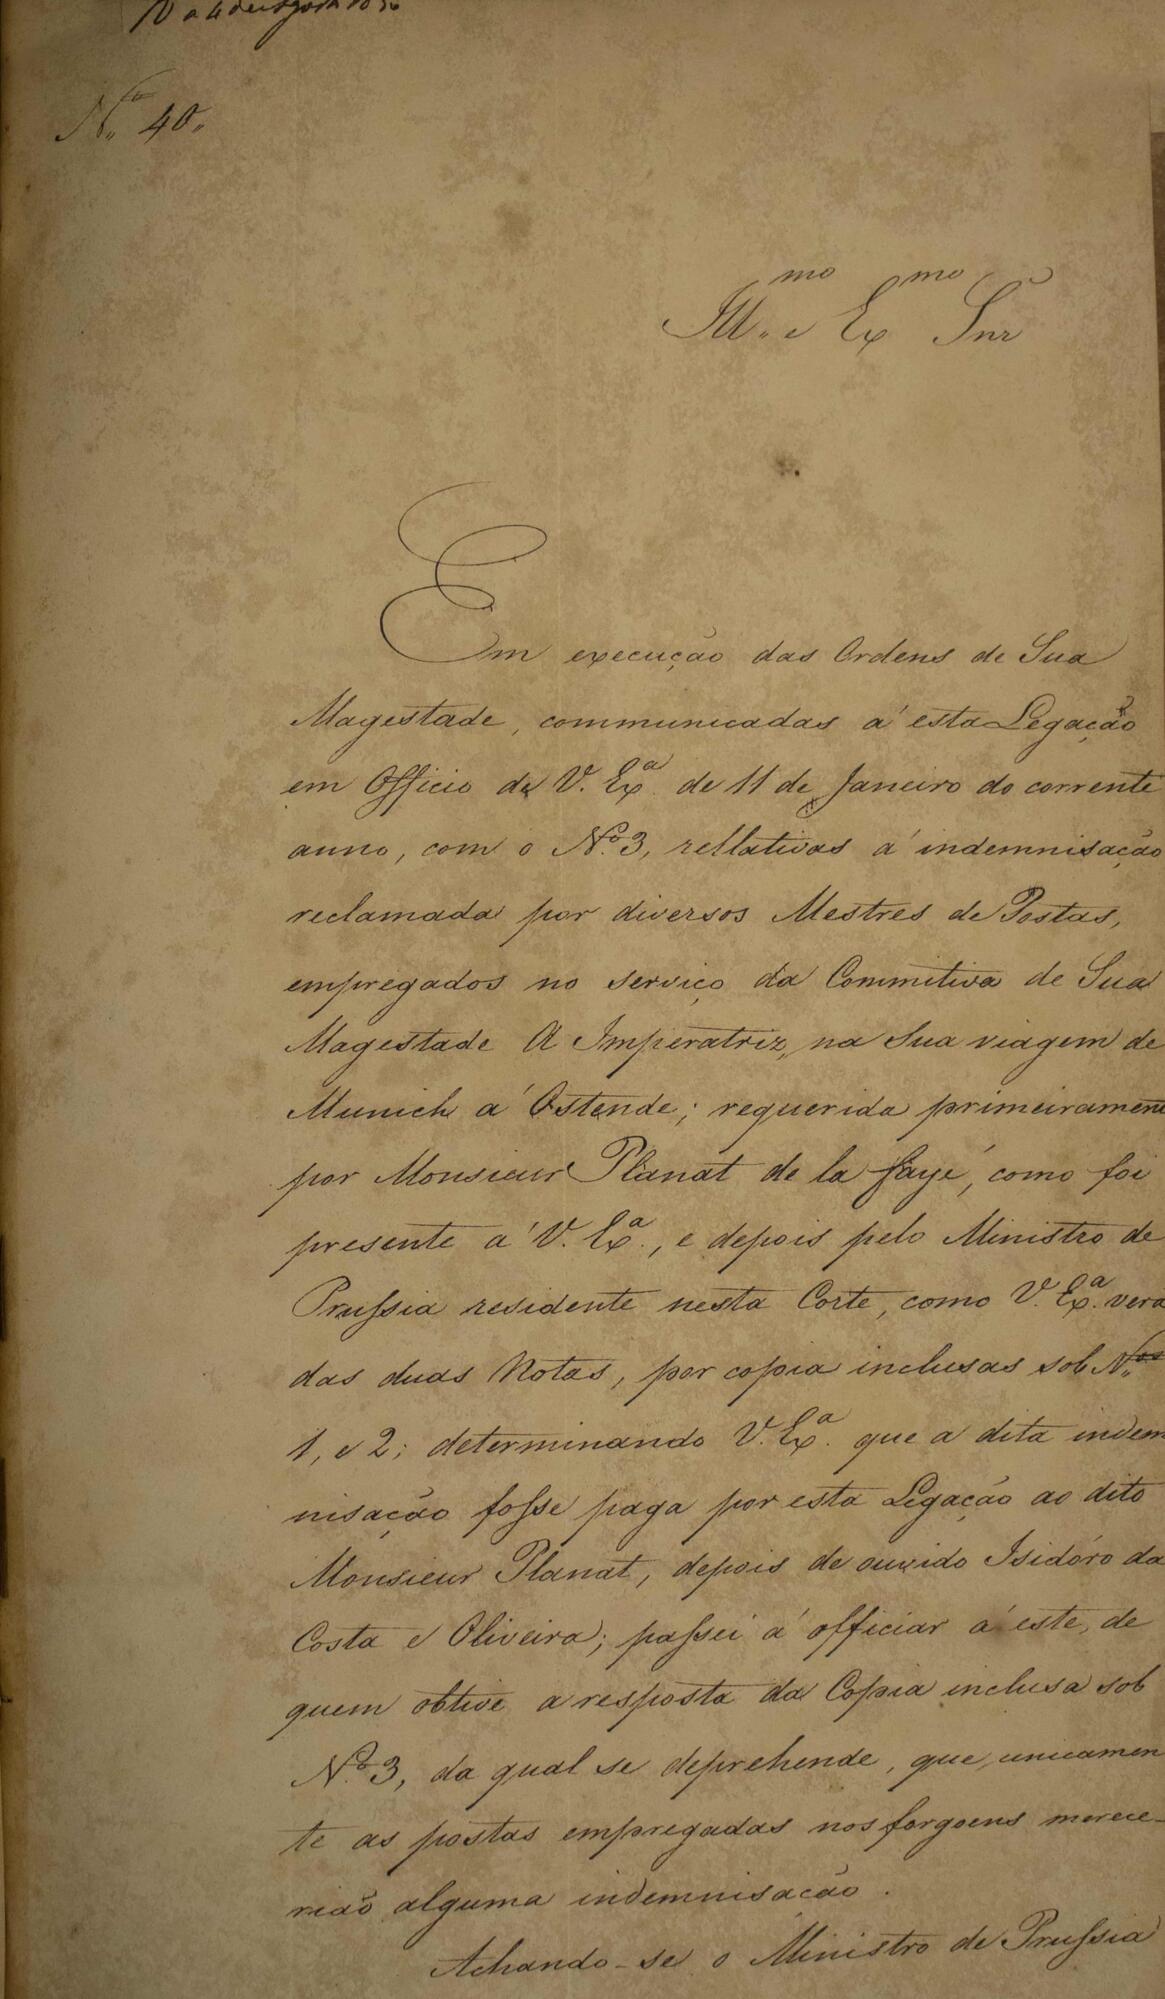 Nº 40.
Ill.mo e Ex.mo Snr
Em execução das Ordens de Sua
Magestade, communicadas á esta Legação
em Officio de V. Ex.ª de 11 de Janeiro do corrente
anno, com o Nº 3, rellativas á indemnisação
reclamada por diversos Mestres de Postas,
empregados no serviço da Commitiva de Sua
Magestade A Imperatriz, na Sua viagem de
Munich á Ostende; requerida primeirament
por Monsieur Planat de la Faye, como foi
presente á V. Ex.ª, e depois pelo Ministro de
Prussia residente nesta Corte, como V. Ex.ª vera
das duas Notas, por copia inclusas sob Nos
1, e 2; determinando V. Ex.ª que a dita indem
nisação fosse paga por esta Legação ao dito
Monsieur Planat, depois de ouvido Isidóro da
Costa e Oliveira; passei á officiar á este, de
quem obtive a resposta da Copia inclusa sob
Nº 3, da qual se deprehende, que unicamen
te as postas empregadas nos forgoens merece-
rião alguma indemnisacão.
Achando-se o Ministro de Prussia